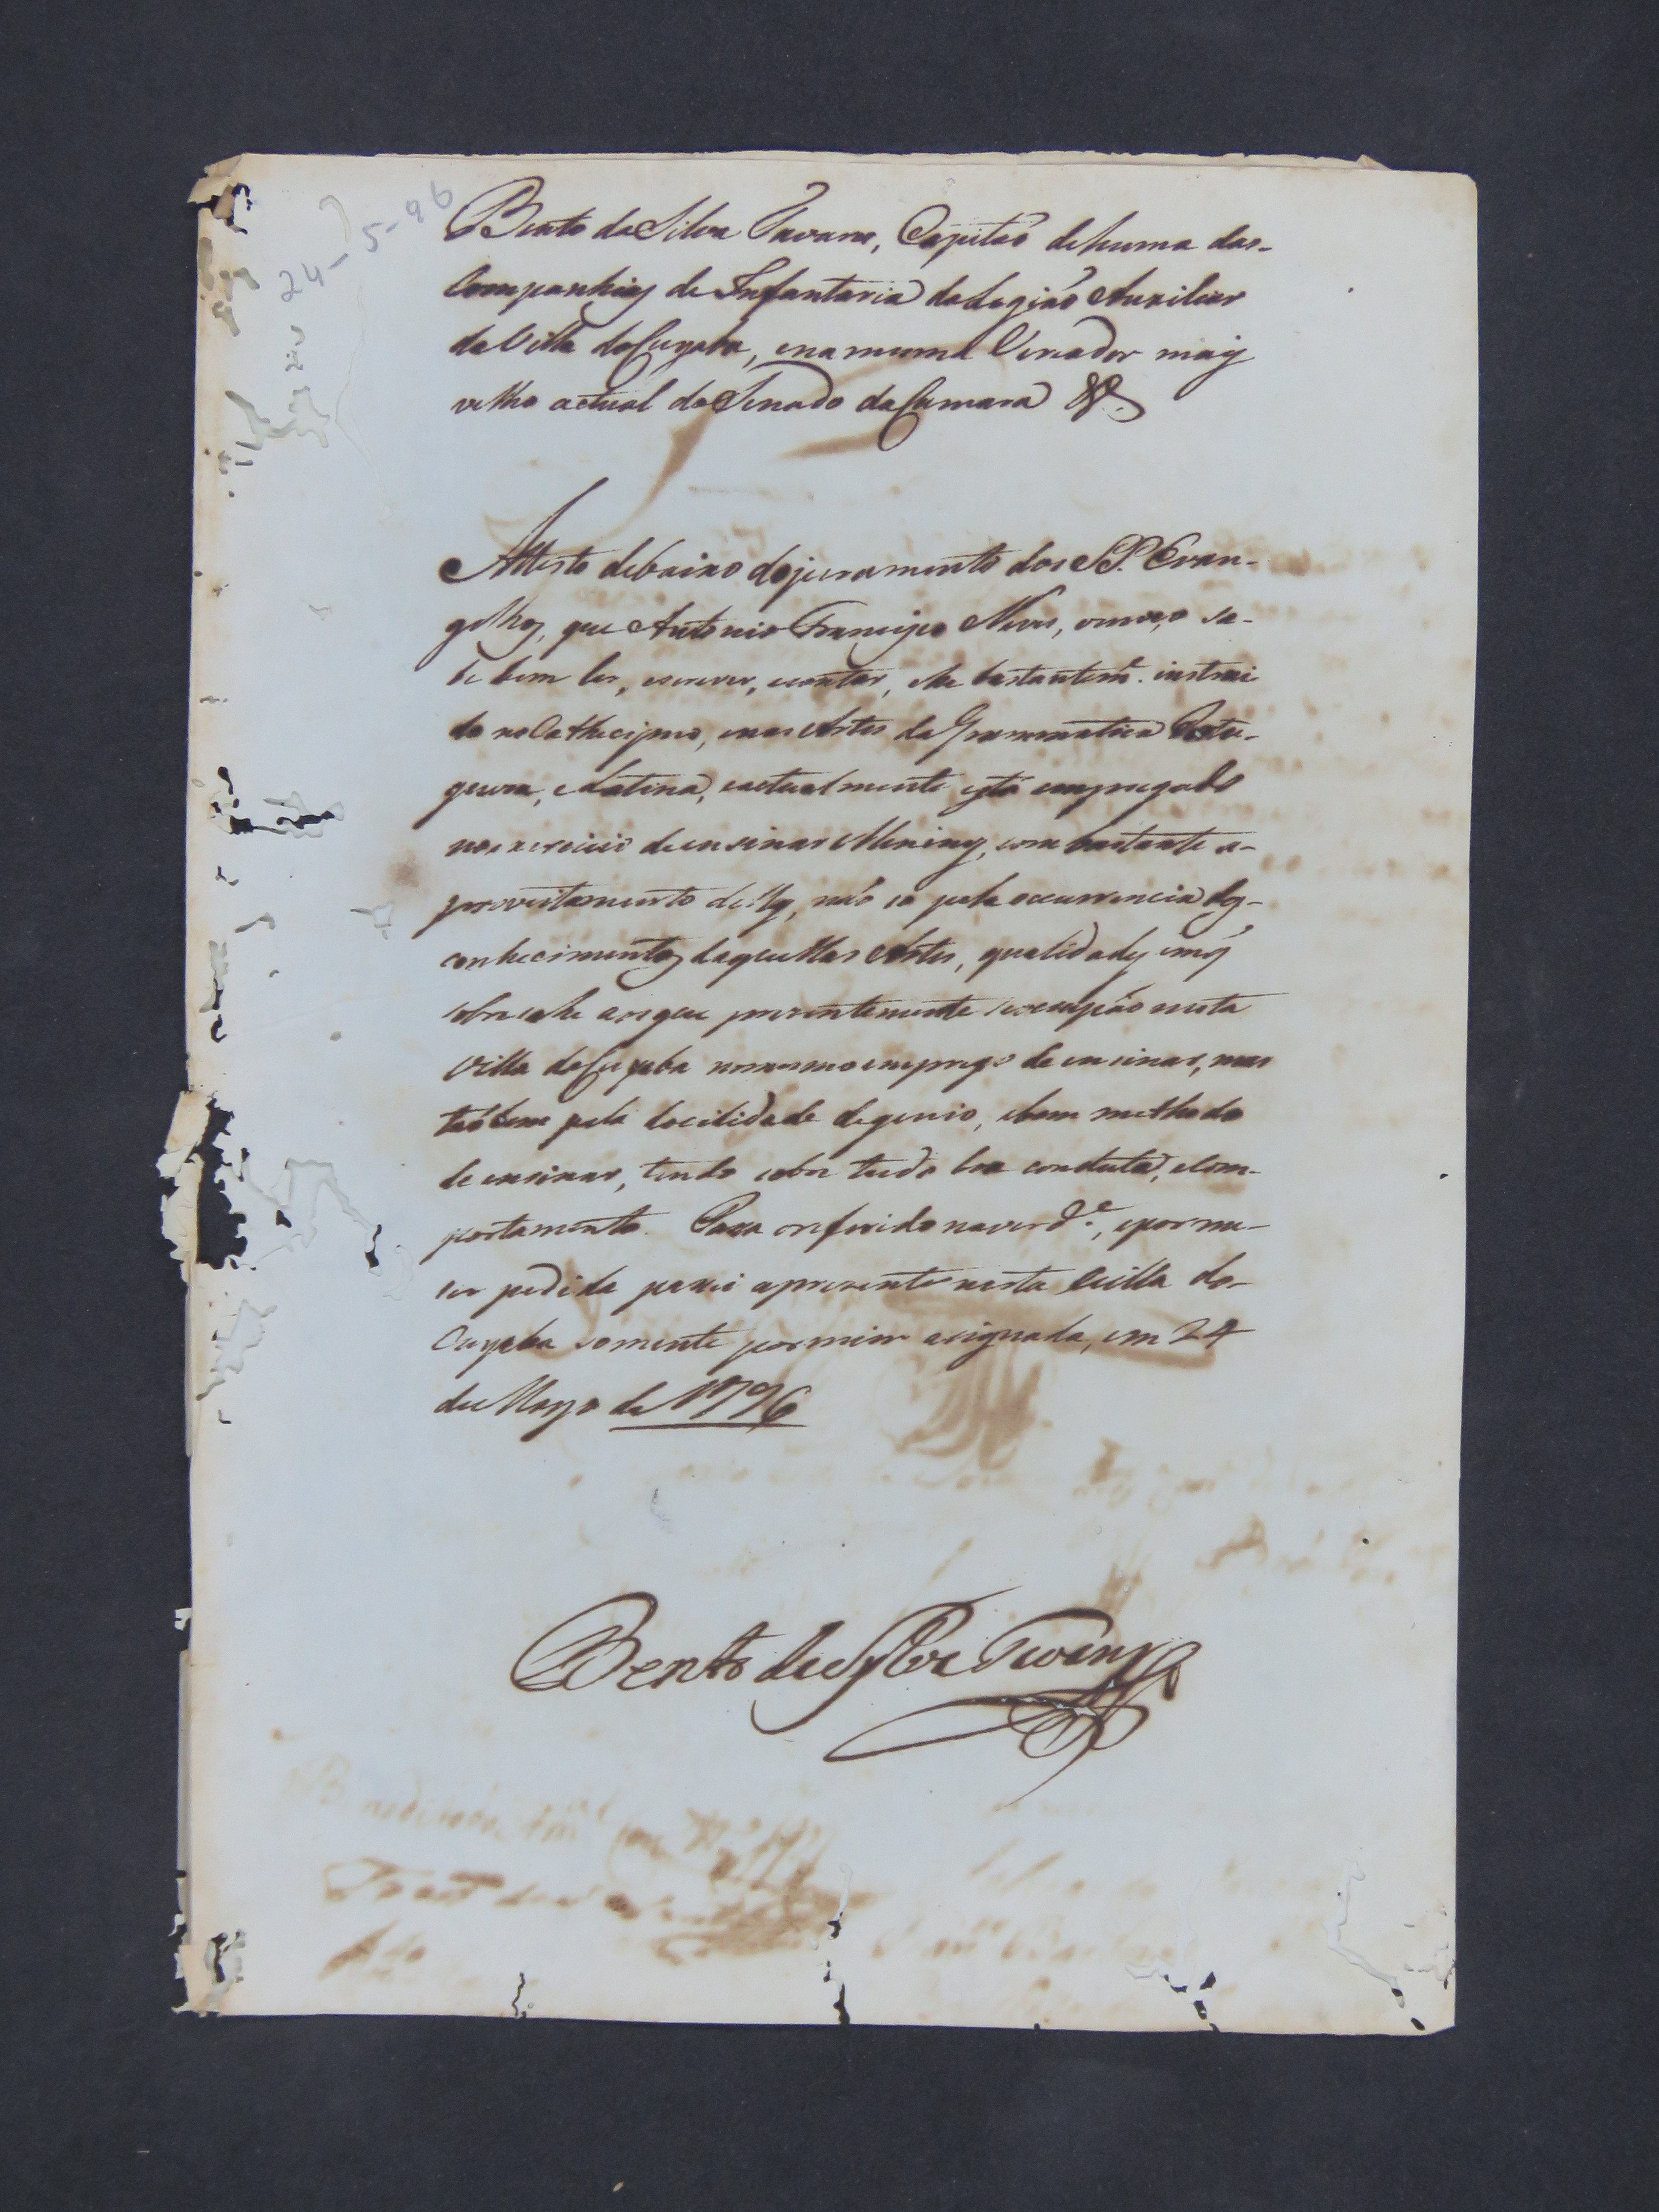 24-5-96
Bento da Silva Tavares, Capitaõ de huma das
Companhias de Infantaria da Legiaõ Auxiliar
da Villa do Cuyaba, e na mesma Vereador mais
velho actual do Senado da Camara &ª.
Attesto debaixo do juramento dos SS. Evan-
gelhos, que Antonio Francisco Neves, sa-
be bem ler, escrever, e contar, e he bastantemᵉ. instrui
do no Cathecismo, e nas Artes da Grammatica Portu-
gueza, e Latina, e actualmente está empregado
no exercicio de ensinar Meninos, com bastante a-
proveitamento delles, naõ só pela occurrencia dos
conhecimentos daquellas Artes, qualidades em q̃
sobresahe aos que prezentemente se occupaõ nesta
Villa do Cuyaba no mesmo emprego de ensinar, mas
taõbem pela docilidade de genio, e bom methodo
de ensinar, tendo sobre tudo boa conducta, e com-
portamento. Passa o referido na verdᵉ., e por me
ser pedida passei a prezente nesta Villa do
Cuyaba somente por mim asignada, em 24
de Mayo de 1796
Bento da Sylva Tavares